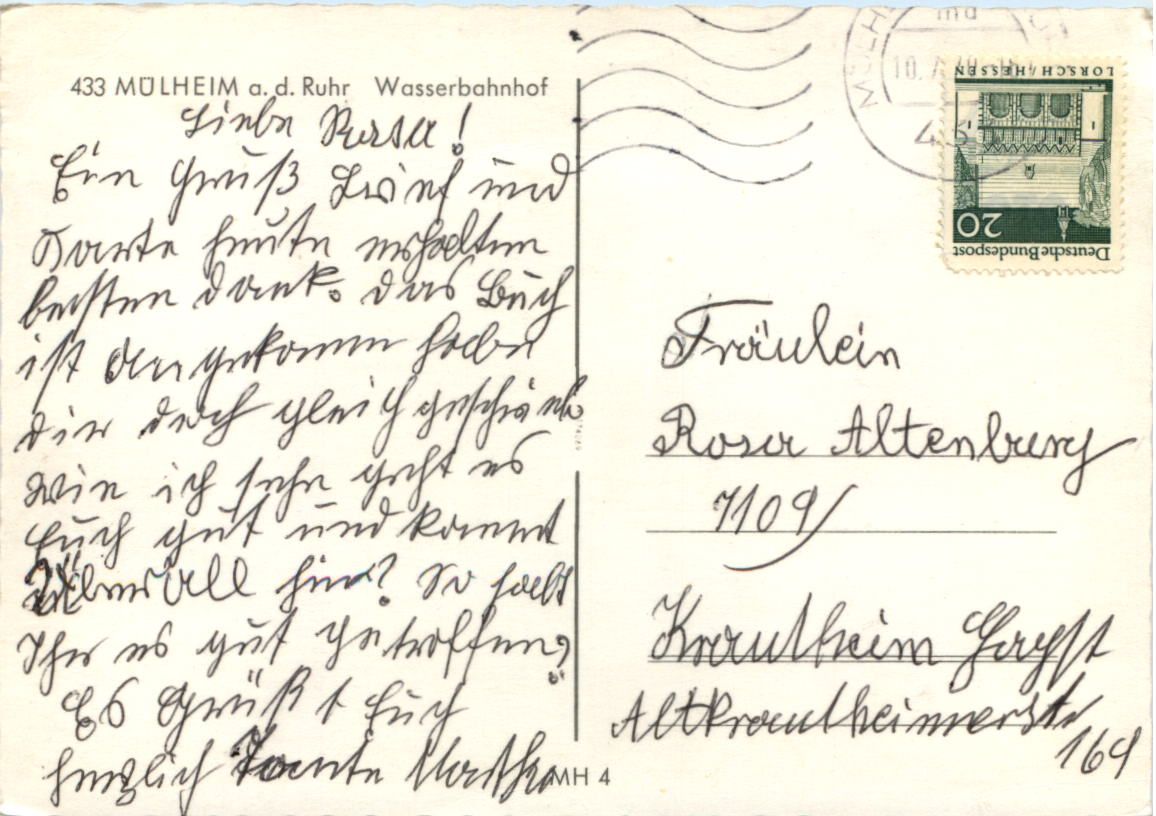 433 MÜLHEIM a. d. Ruhr Wasserbahnhof
Liebe Rosa!
Ein Gruß Brief und
Karte heute erhalten
besten dank. das Buch
ist angekomm habe
dir doch gleich geschrieb.
wie ich sehe geht es
Euch gut und kommt
überall hin? So habt
Ihr es gut getroffen,
Es Grüßt Euch
herzlich Tante Martha
MH 4
10. 7. 70
43
LORSCH/HESSEN
20
Deutsche Bundespost
Fräulein
Rosa Altenburg
7109
Krautheim Jagst
Altkrautheimerstr
164